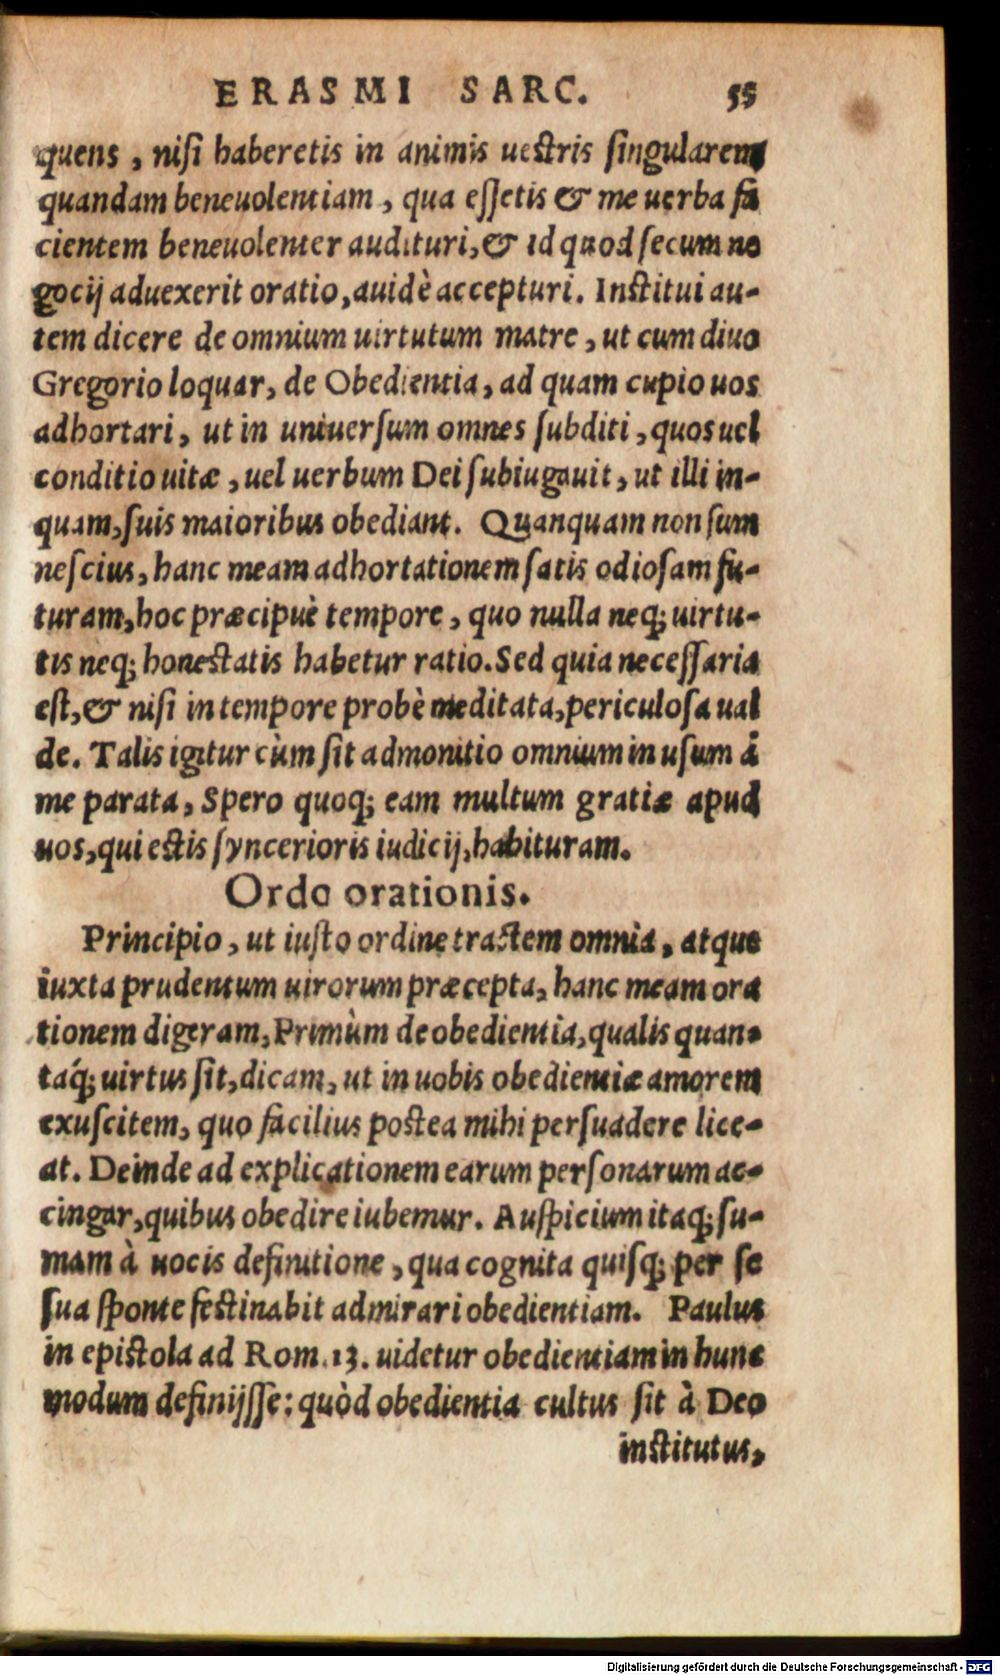 ERASMI SARC. 55
quens, nisi haberetis in animis uestris singularem
quandam beneuolentiam, qua essetis & me uerba fa
cientem beneuolenter audituri, & id quod secum ne
gocij aduexerit oratio, auidè accepturi. Institui au-
tem dicere de omnium uirtutum matre, ut cum diuo
Gregorio loquar, de Obedientia, ad quam cupio uos
adhortari, ut in uniuersum omnes subditi, quos uel
conditio uitæ, uel uerbum Dei subiugauit, ut illi in-
quam, suis maioribus obediant. Quanquam non sum
nescius, hanc meam adhortationem satis odiosam fu-
turam, hoc præcipuè tempore, quo nulla neq; uirtu-
tis neq; honestatis habetur ratio. Sed quia necessaria
est, & nisi in tempore probè meditata, periculosa ual
de. Talis igitur cùm sit admonitio omnium in usum á
me parata, Spero quoq; eam multum gratiæ apud
uos, qui estis syncerioris iudicij, habituram.
Ordo orationis.
Principio, ut iusto ordine tractem omnia, atque
iuxta prudentum uirorum præcepta, hanc meam ora
tionem digeram, Primùm de obedientia, qualis quan-
táq; uirtus sit, dicam, ut in uobis obedientiæ amorem
exuscitem, quo facilius postea mihi persuadere lice-
at. Deinde ad explicationem earum personarum ac-
cingar, quibus obedire iubemur. Auspicium itaq; su-
mam à uocis definitione, qua cognita quisq; per se
sua sponte festinabit admirari obedientiam. Paulus
in epistola ad Rom. 13. uidetur obedientiam in hunc
modum definijsse: quòd obedientia cultus sit à Deo
institutus,
Digitalisierung gefördert durch die Deutsche Forschungsgemeinschaft - DFG